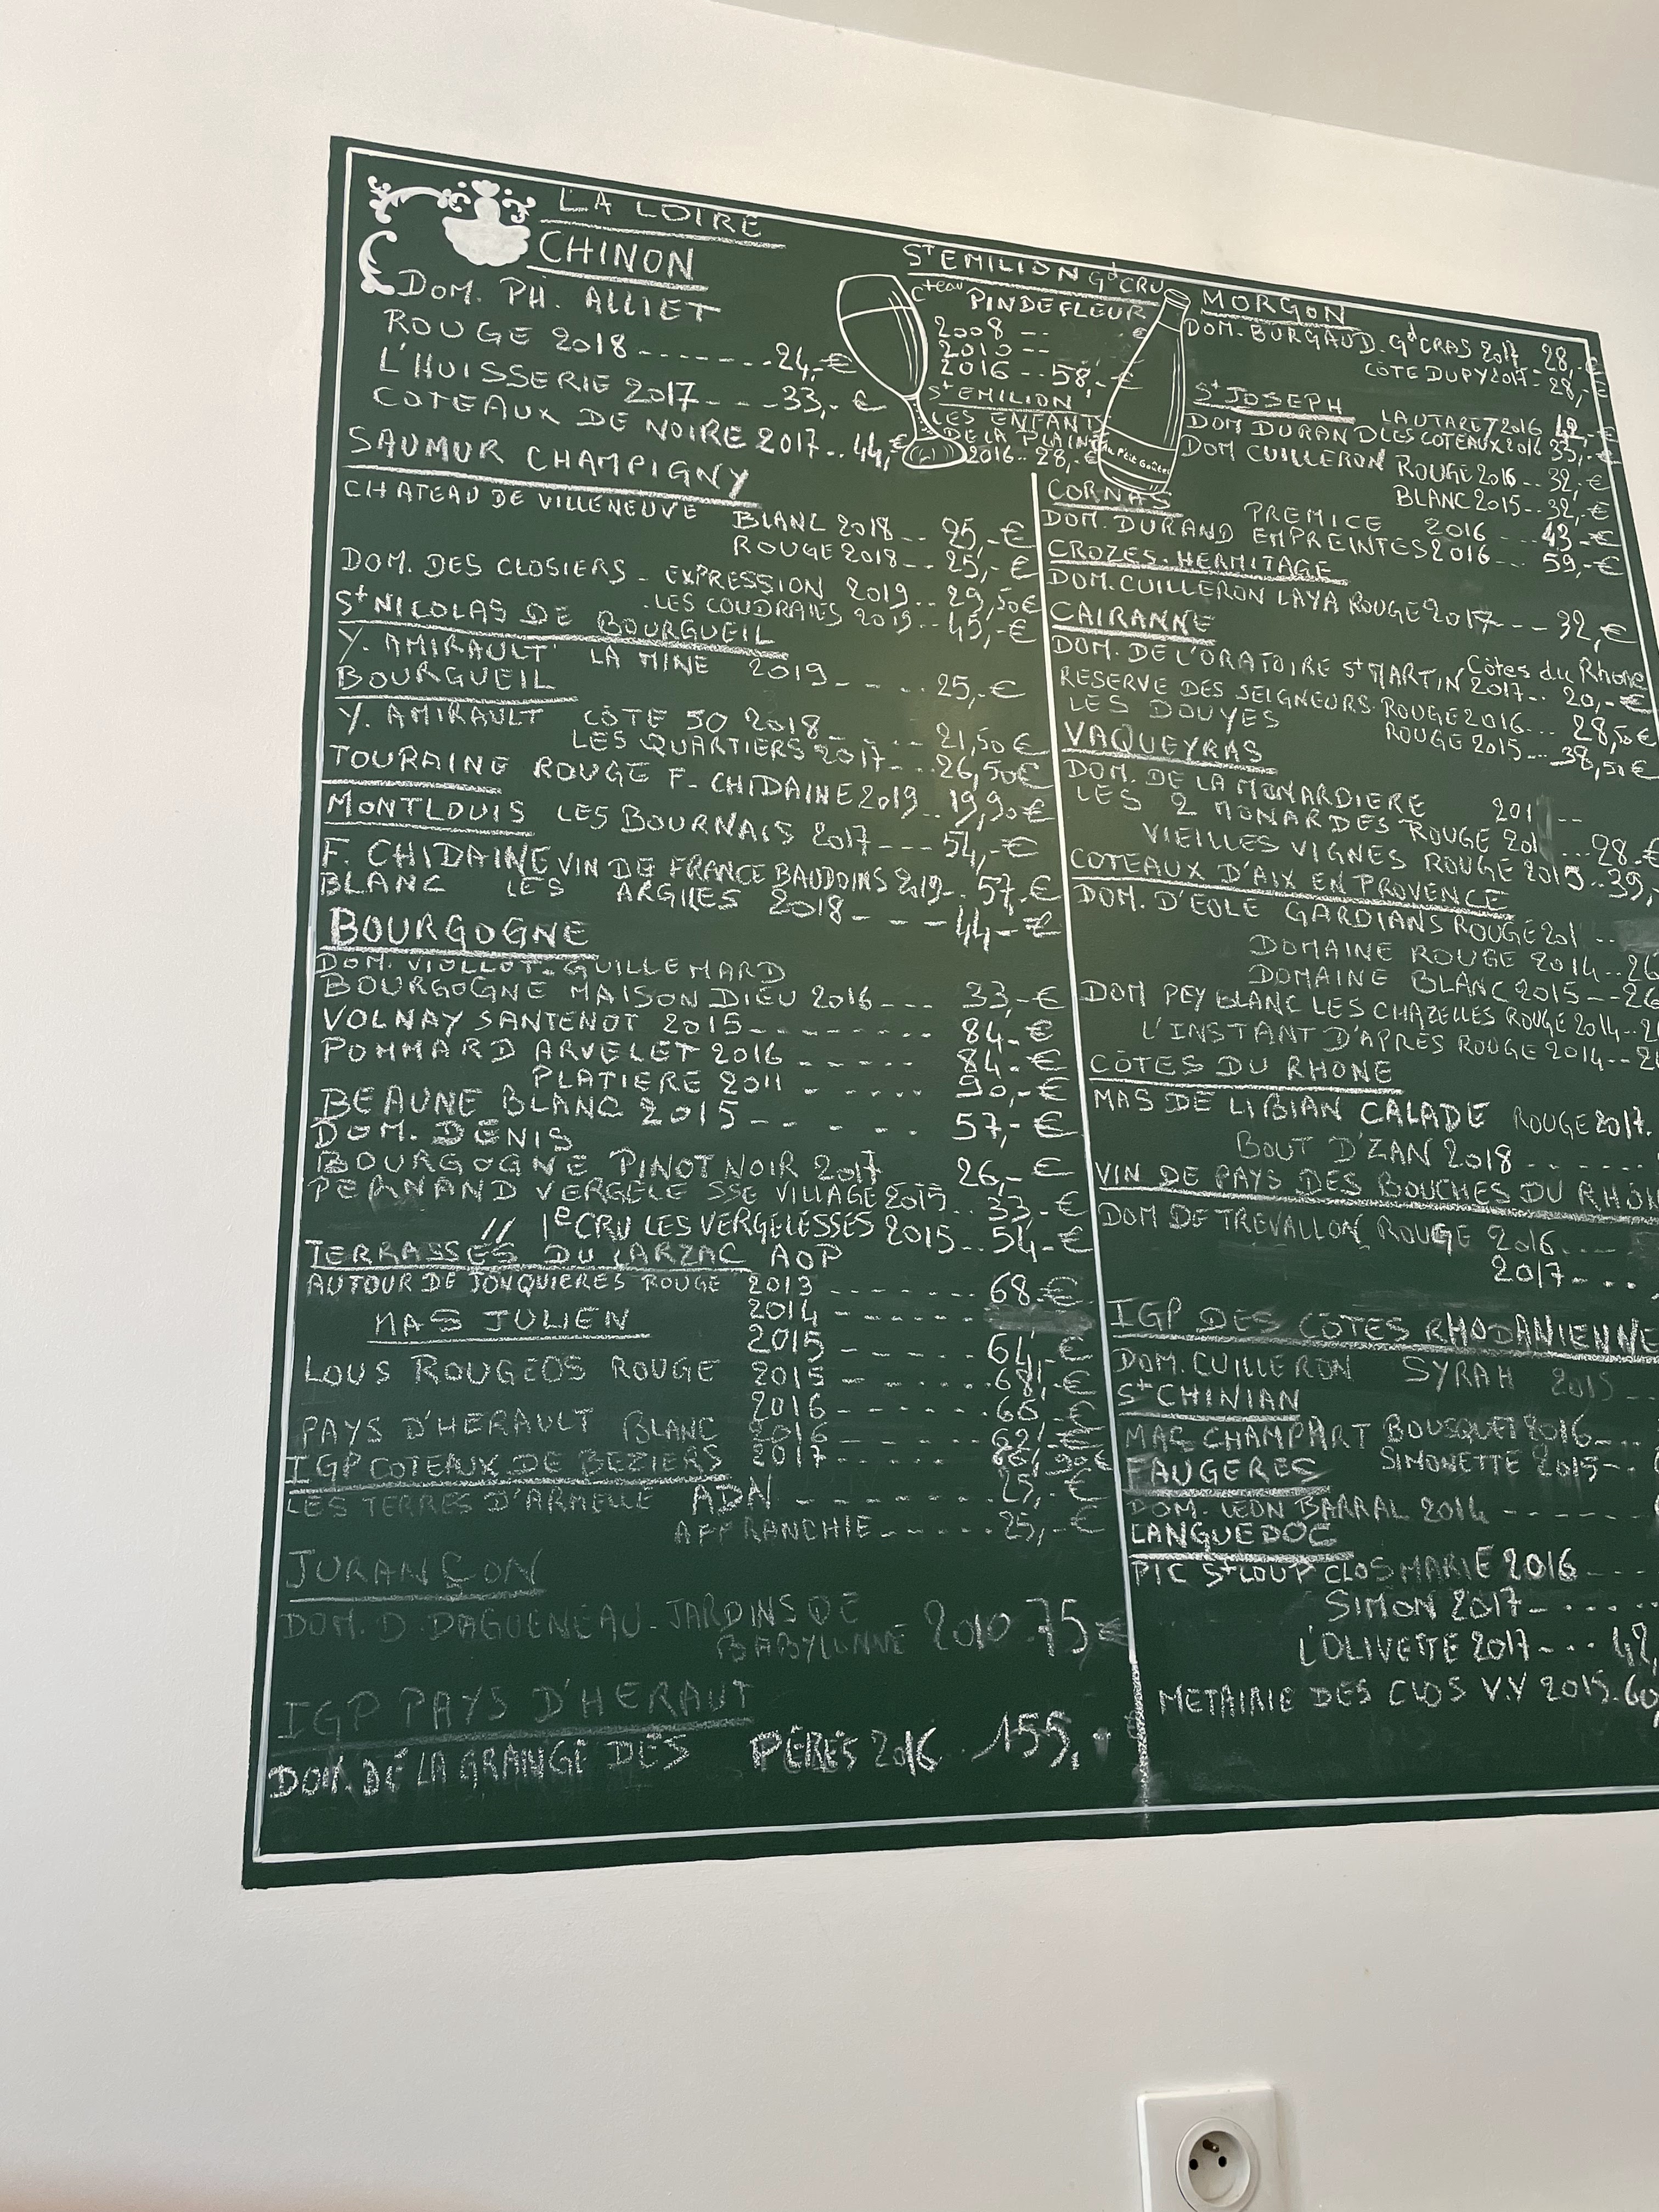 LA LOIRE
CHINON
DOM. PH. ALLIET
ROUGE 2018-------24,-€
L'HUISSERIE 2017----33,-€
COTEAUX DE NOIRE 2017..44,€
SAUMUR CHAMPIGNY
CHATEAU DE VILLENEUVE
BLANC 2018-- 25,-€
ROUGE 2018-- 25,-€
DOM. DES CLOSIERS - EXPRESSION 2019.. 29,50€
.LES COUDRAIES 2019.. 45,-€
St NICOLAS DE BOURGUEIL
Y. AMIRAULT LA MINE 2019---.. 25,-€
BOURGUEIL
Y. AMIRAULT CÔTE 50 2018---- 21,50€
LES QUARTIERS 2017--.. 26,50€
TOURAINE ROUGE F. CHIDAINE 2019.. 19,90€
MONTLOUIS LES BOURNAIS 2017--- 54,-€
F. CHIDAINE VIN DE FRANCE BAUDOINS 2019.. 57.€
BLANC LES ARGILES 2018---- 44-€
BOURGOGNE
DOM. VIOLLOT-GUILLEMARD
BOURGOGNE MAISON DIEU 2016--- 33,-€
VOLNAY SANTENOT 2015-------- 84-€
POMMARD ARVELET 2016------ 84-€
PLATIERE 2011------ 90,-€
BEAUNE BLANC 2015------ 57,-€
DOM. DENIS
BOURGOGNE PINOT NOIR 2017 26,-€
PERNAND VERGELESSE VILLAGE 2015.. 33-€
// 1e CRU LES VERGELESSES 2015.. 54-€
TERRASSES DU LARZAC AOP
AUTOUR DE JONQUIERES ROUGE 2013------- 68-€
2014------
MAS JULIEN
2015------ 64,-€
LOUS ROUGEOS ROUGE 2015------ 68,-€
2016------ 66,-€
PAYS D'HERAULT BLANC 2016------ 62,
2017------
IGP COTEAUX DE BEZIERS
LES TERRES D'ARMELLE ADN ------- 25,-€
AFFRANCHIE------ 25,-€
JURANÇON
DOM. D. DAGUENEAU - JARDINS DE
BABYLONNE 2010 75€
IGP PAYS D'HERAUT
DOM. DE LA GRANGE DES PÈRES 2016 155,
St EMILION Gd CRU
Cteau PINDEFLEUR
2008 --- €
2010 --
2016 -- 58,-€
St EMILION
LES ENFANTS
DE LA PLAINE
2016-- 28,-€
Au Ptit Goûtes
MORGON
DOM. BURGAUD. Gd CRAS 2017- 28,-€
CÔTE DU PY 2017- 28,-€
St JOSEPH LAUTARET 2016 42,-€
DOM DURAND LES COTEAUX 2016 35,-€
DOM CUILLERON ROUGE 2016-- 32,-€
BLANC 2015-- 32,-€
CORNAS
PREMICE 2016 --- 43-€
DOM. DURAND EMPREINTES 2016 --- 59,-€
CROZES. HERMITAGE
DOM. CUILLERON LAYA ROUGE 2017---- 32,€
CAIRANNE
DOM. DE L'ORATOIRE St MARTIN Côtes du Rhone
2017-- 20,-€
RESERVE DES SEIGNEURS. ROUGE 2016... 28,50€
LES DOUYES ROUGE 2015... 38,50€
VAQUEYRAS
DOM. DE LA MONARDIERE 201 --
LES 2 MONARDES ROUGE 201 ... 28-€
VIEILLES VIGNES ROUGE 2015.. 39,-
COTEAUX D'AIX EN PROVENCE
DOM. D'EOLE GARDIANS ROUGE 201 --
DOMAINE ROUGE 2014-- 26
DOMAINE BLANC 2015--- 26
DOM PEY BLANC LES CHAZELLES ROUGE 2014.. 2
L'INSTANT D'APRÈS ROUGE 2014-- 2
CÔTES DU RHONE
MAS DE LIBIAN CALADE ROUGE 2017.
BOUT D'ZAN 2018 -------
VIN DE PAYS DES BOUCHES DU RHÔN
DOM DE TREVALLON ROUGE 2016....
2017---.
IGP DES COTES RHODANIENNE
DOM. CUILLERON SYRAH 2015 --
St CHINIAN
MAS CHAMPART BOUSQUET 2016--
SIMONETTE 2015--.
FAUGERES
DOM. LEON BARRAL 2014 ------
LANGUEDOC
PIC St LOUP CLOS MARIE 2016 ----
SIMON 2017------
L'OLIVETTE 2017--- 42,
METAIRIE DES CLOS V.V 2015-60